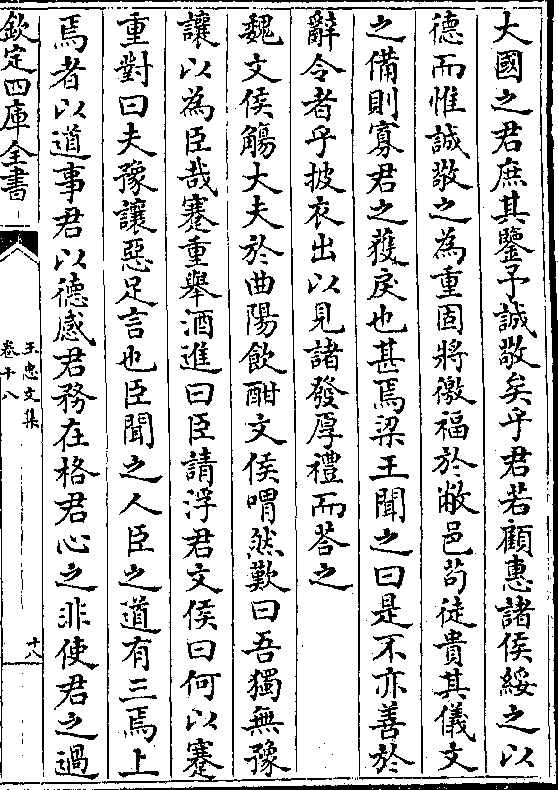 大國之君庶其鑒予誠敬矣乎君若顧惠諸侯綏之以
德而惟誠敬之為重固將徼福於敝邑茍徒貴其儀文
之備則寡君之獲戾也甚焉梁王聞之曰是不亦善於
辭令者乎披衣出以見諸發厚禮而荅之
魏文侯觴大夫於曲陽飲酣文侯喟然歎曰吾獨無豫
讓以為臣哉蹇重舉酒進曰臣請浮君文侯曰何以蹇
重對曰夫豫讓惡足言也臣聞之人臣之道有三焉上
焉者以道事君以德感君務在格君心之非使君之過
欽定四庫全書
王忠文集
卷十八
十八